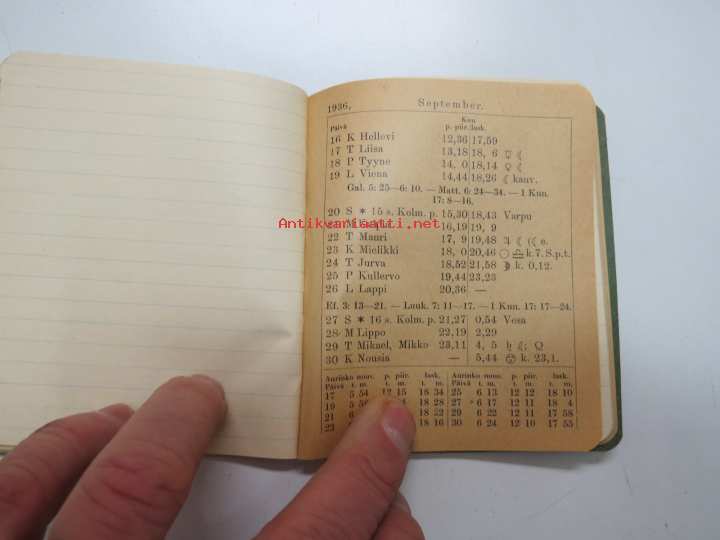 1936, September.
Päivä Kuu
p. piir. lask.
16 K Hellevi 12,36 17,59
17 T Liisa 13,18 18, 6 ☿ ☾
18 P Tyyne 14, 0 18,14 ♀ ☾
19 L Viena 14,44 18,26 ☾ kauv.
Gal. 5: 25—6: 10. — Matt. 6: 24—34. — 1 Kun.
17: 8—16.
20 S * 15 s. Kolm. p. 15,30 18,43 Varpu
Antikvariaatti.net
16,19 19, 9
22 T Mauri 17, 9 19,48 ♃ ☾
23 K Mielikki 18, 0 20,46 k. 7. S.p.t.
24 T Jurva 18,52 21,58 k. 0,12.
25 P Kullervo 19,44 23,23
26 L Lappi 20,36 —
Ef. 3: 13—21. — Luuk. 7: 11—17. — 1 Kun. 17: 17—24.
27 S * 16 s. Kolm. p. 21,27 0,54 Vesa
28 M Lippo 22,19 2,29
29 T Mikael, Mikko 23,11 4, 5 ♄ ☾;
30 K Nousia — 5,44 k. 23,1.
Aurinko nous. p. piir. lask. Aurinko nous. p. piir. lask.
Päivä t. m. t. m. t. m. Päivä t. m. t. m. t. m.
17 5 54 12 15 18 34 25 6 13 12 12 18 10
19 5 18 28 27 6 17 12 11 18 4
21 18 22 29 6 22 12 11 17 58
23 18 16 30 6 24 12 10 17 55